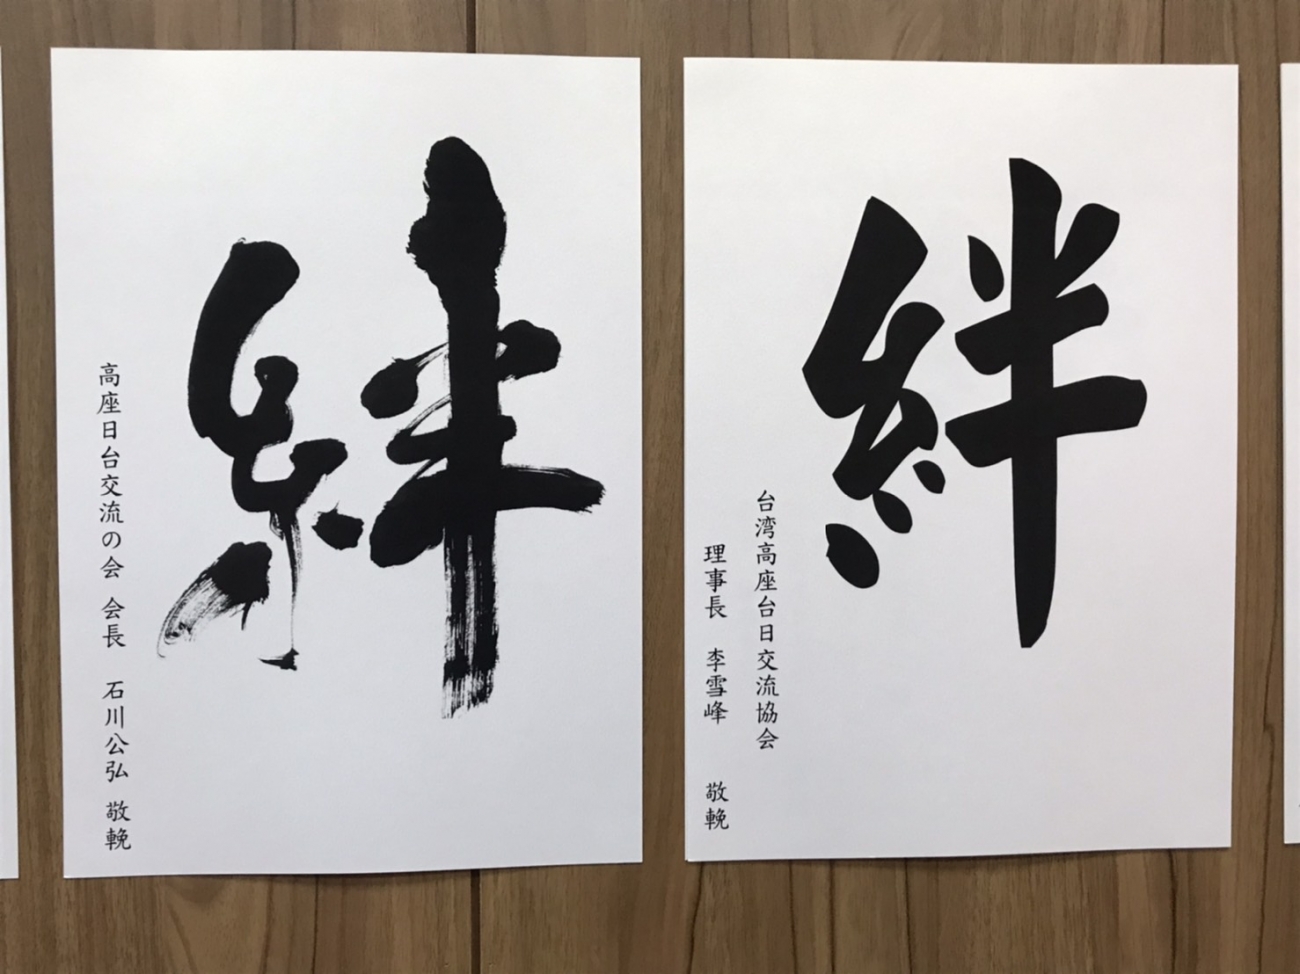 絆
高座日台交流の会 会長 石川公弘 敬輓
絆
台湾高座台日交流協会
理事長 李雪峰 敬輓